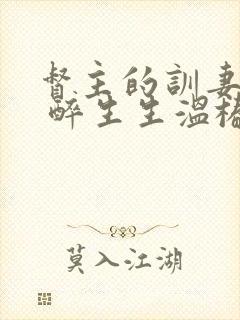 督主的訓妻
醉生生溫椿
莫入江湖